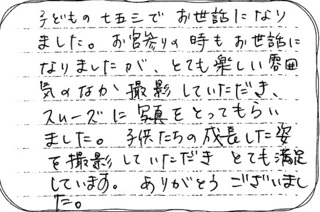 子どもの七五三でお世話になり
ました。お宮参りの時もお世話に
なりましたが、とても楽しい雰囲
気のなか撮影していただき、
スムーズに写真をとってもらい
ました。子供たちの成長した姿
を撮影していただきとても満足
しています。ありがとうございまし
た。